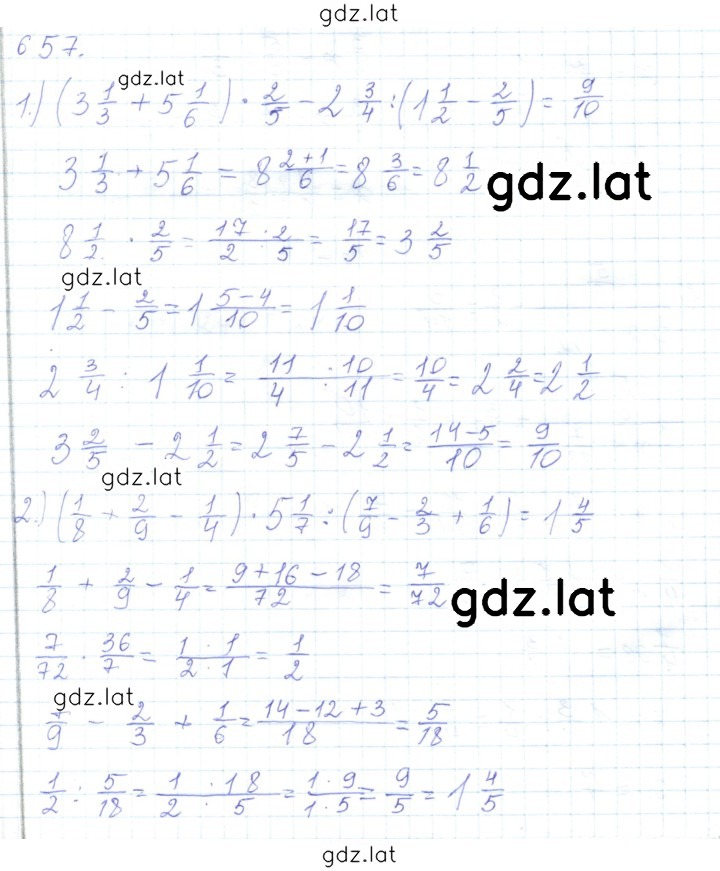 gdz.lat
657.
gdz.lat
1.) (3 1/3 + 5 1/6) · 2/5 - 2 3/4 : (1 1/2 - 2/5) = 9/10
3 1/3 + 5 1/6 = 8 (2+1)/6 = 8 3/6 = 8 1/2
gdz.lat
8 1/2 · 2/5 = (17 · 2)/(2 · 5) = 17/5 = 3 2/5
gdz.lat
1 1/2 - 2/5 = 1 (5-4)/10 = 1 1/10
2 3/4 : 1 1/10 = (11 · 10)/(4 · 11) = 10/4 = 2 2/4 = 2 1/2
3 2/5 - 2 1/2 = 2 7/5 - 2 1/2 = (14-5)/10 = 9/10
gdz.lat
2.) (1/8 + 2/9 - 1/4) · 5 1/7 : (7/9 - 2/3 + 1/6) = 1 4/5
1/8 + 2/9 - 1/4 = (9+16-18)/72 = 7/72
gdz.lat
7/72 · 36/7 = (1 · 1)/(2 · 1) = 1/2
gdz.lat
7/9 - 2/3 + 1/6 = (14-12+3)/18 = 5/18
1/2 : 5/18 = (1 · 18)/(2 · 5) = (1 · 9)/(1 · 5) = 9/5 = 1 4/5
gdz.lat